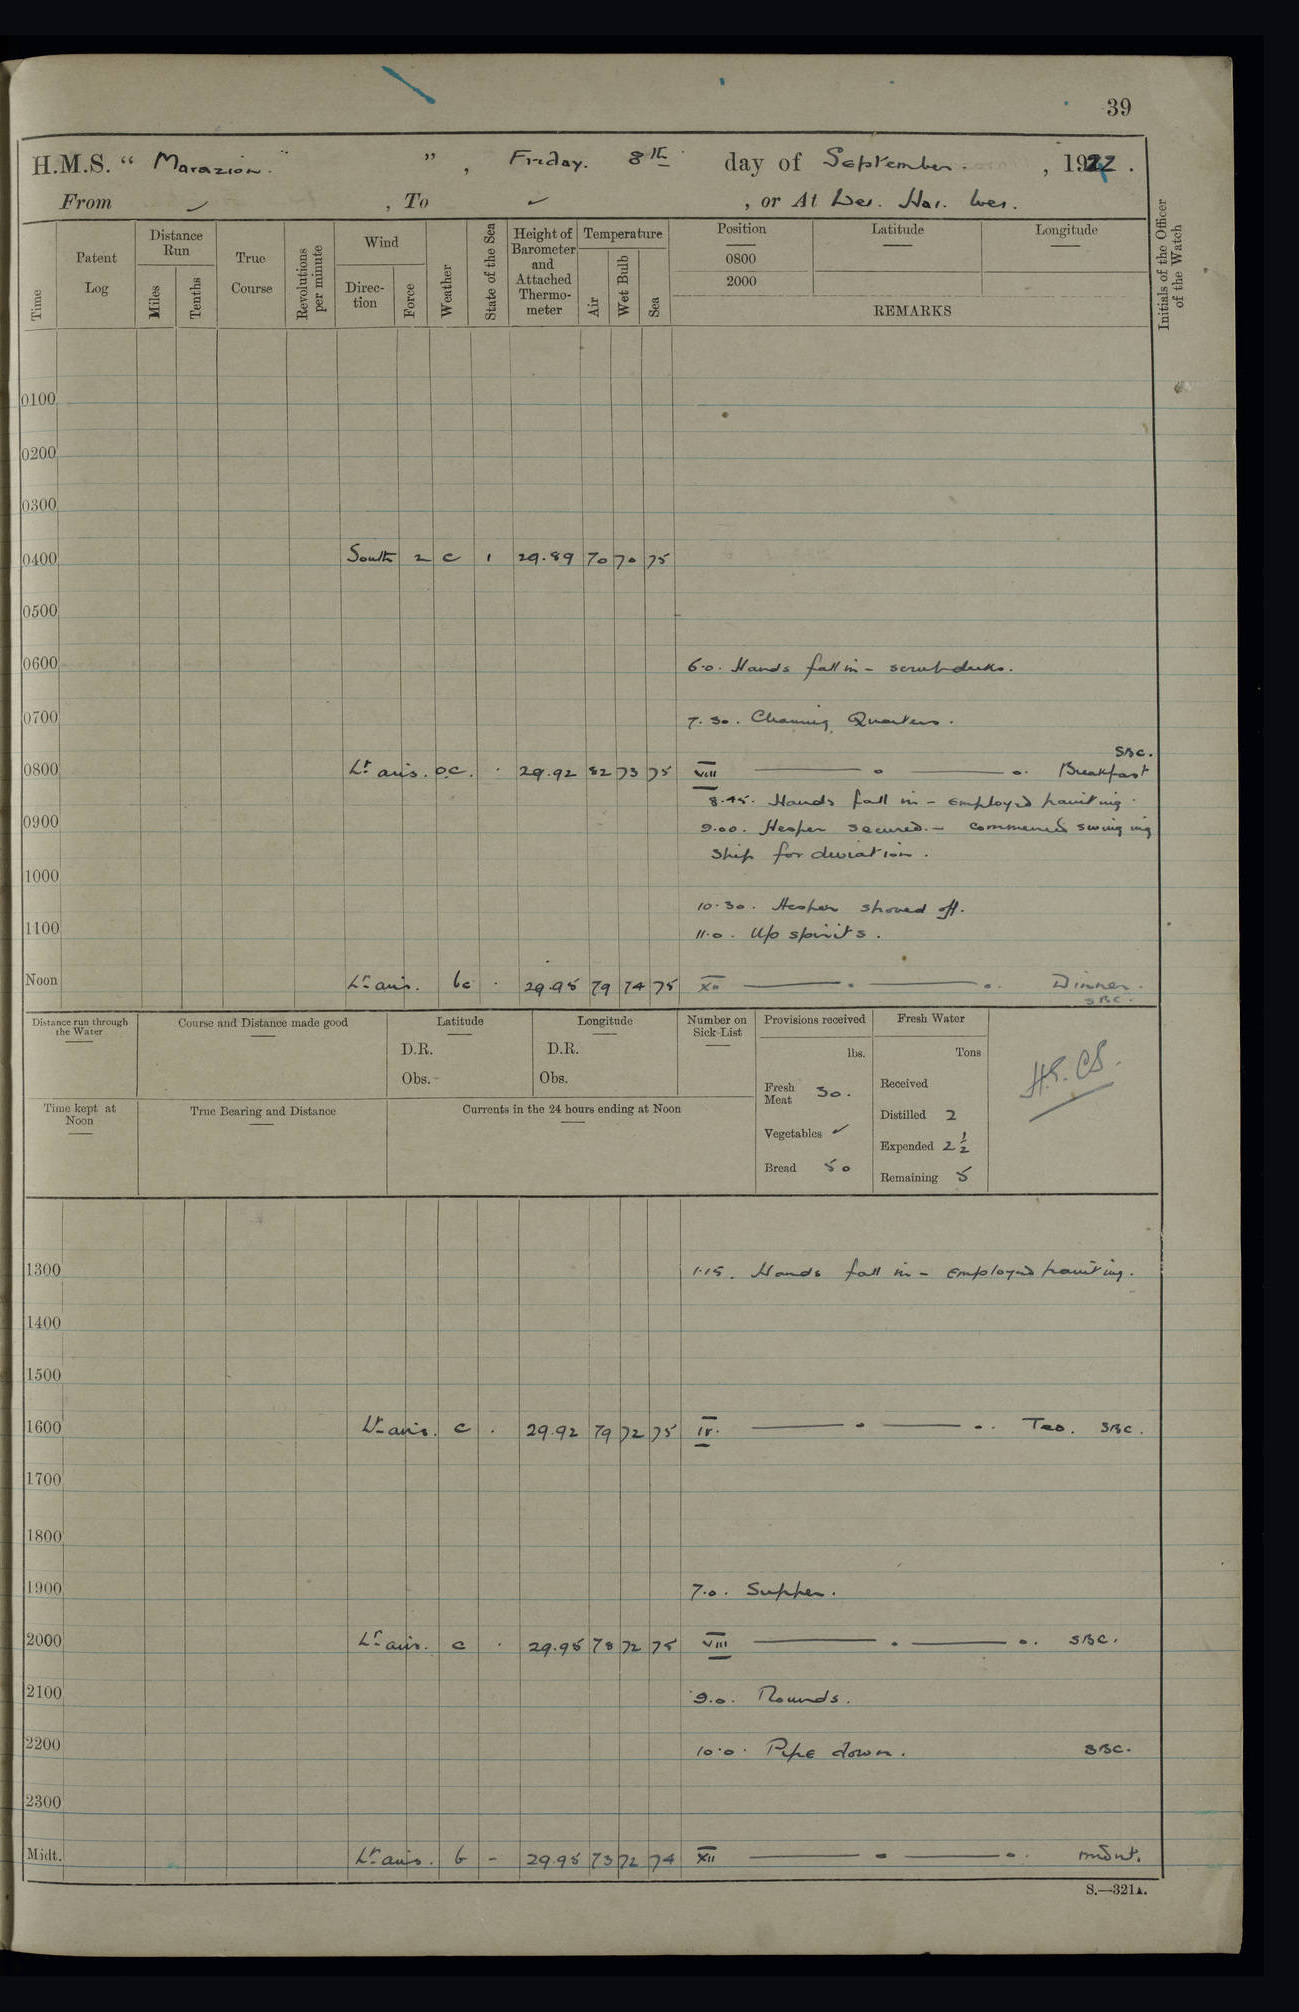 39
H.M.S. “ Marazion. ” , Friday. 8th day of September. , 1922.
From ✓ , To ✓ , or At Wei. Hai. Wei.
Time
Patent Log
Distance Run
Miles
Tenths
True Course
Revolutions per minute
Wind
Direction
Force
Weather
State of the Sea
Height of Barometer and Attached Thermometer
Temperature
Air
Wet Bulb
Sea
Position
0800
2000
Latitude
Longitude
REMARKS
Initials of the Officer of the Watch
0100
0200
0300
0400 South 2 c 1 29.89 70 70 75
0500
0600 6.0. Hands fall in - scrub decks.
0700 7.30. Cleaning Quarters.
SBC.
0800 Lt airs. o.c. . 29.92 82 73 75 VIII Breakfast
8.45. Hands fall in - employed painting.
0900 9.00. Hesper secured. - commenced swinging
ship for deviation.
1000
10.30. Hesper shoved off.
1100 11.0. Up spirits.
Noon Lt airs. bc . 29.95 79 74 75 XII Dinner.
SBC.
Distance run through the Water
Course and Distance made good
Latitude
D.R.
Obs.
Longitude
D.R.
Obs.
Number on Sick-List
Provisions received
lbs.
Fresh Meat 30.
Vegetables ✓
Bread 50
Fresh Water
Tons
Received
Distilled 2
Expended 2 1/2
Remaining 5
Time kept at Noon
True Bearing and Distance
Currents in the 24 hours ending at Noon
1300 1.15. Hands fall in - employed painting.
1400
1500
1600 Lt airs. c . 29.92 79 72 75 IV. Tea. SBC.
1700
1800
1900 7.0. Supper.
2000 Lt airs. c . 29.95 78 72 75 VIII SBC.
2100 9.0. Rounds.
2200 10.0. Pipe down. SBC.
2300
Midt. Lt airs. b - 29.95 73 72 74 XII midnt.
S.—321A.